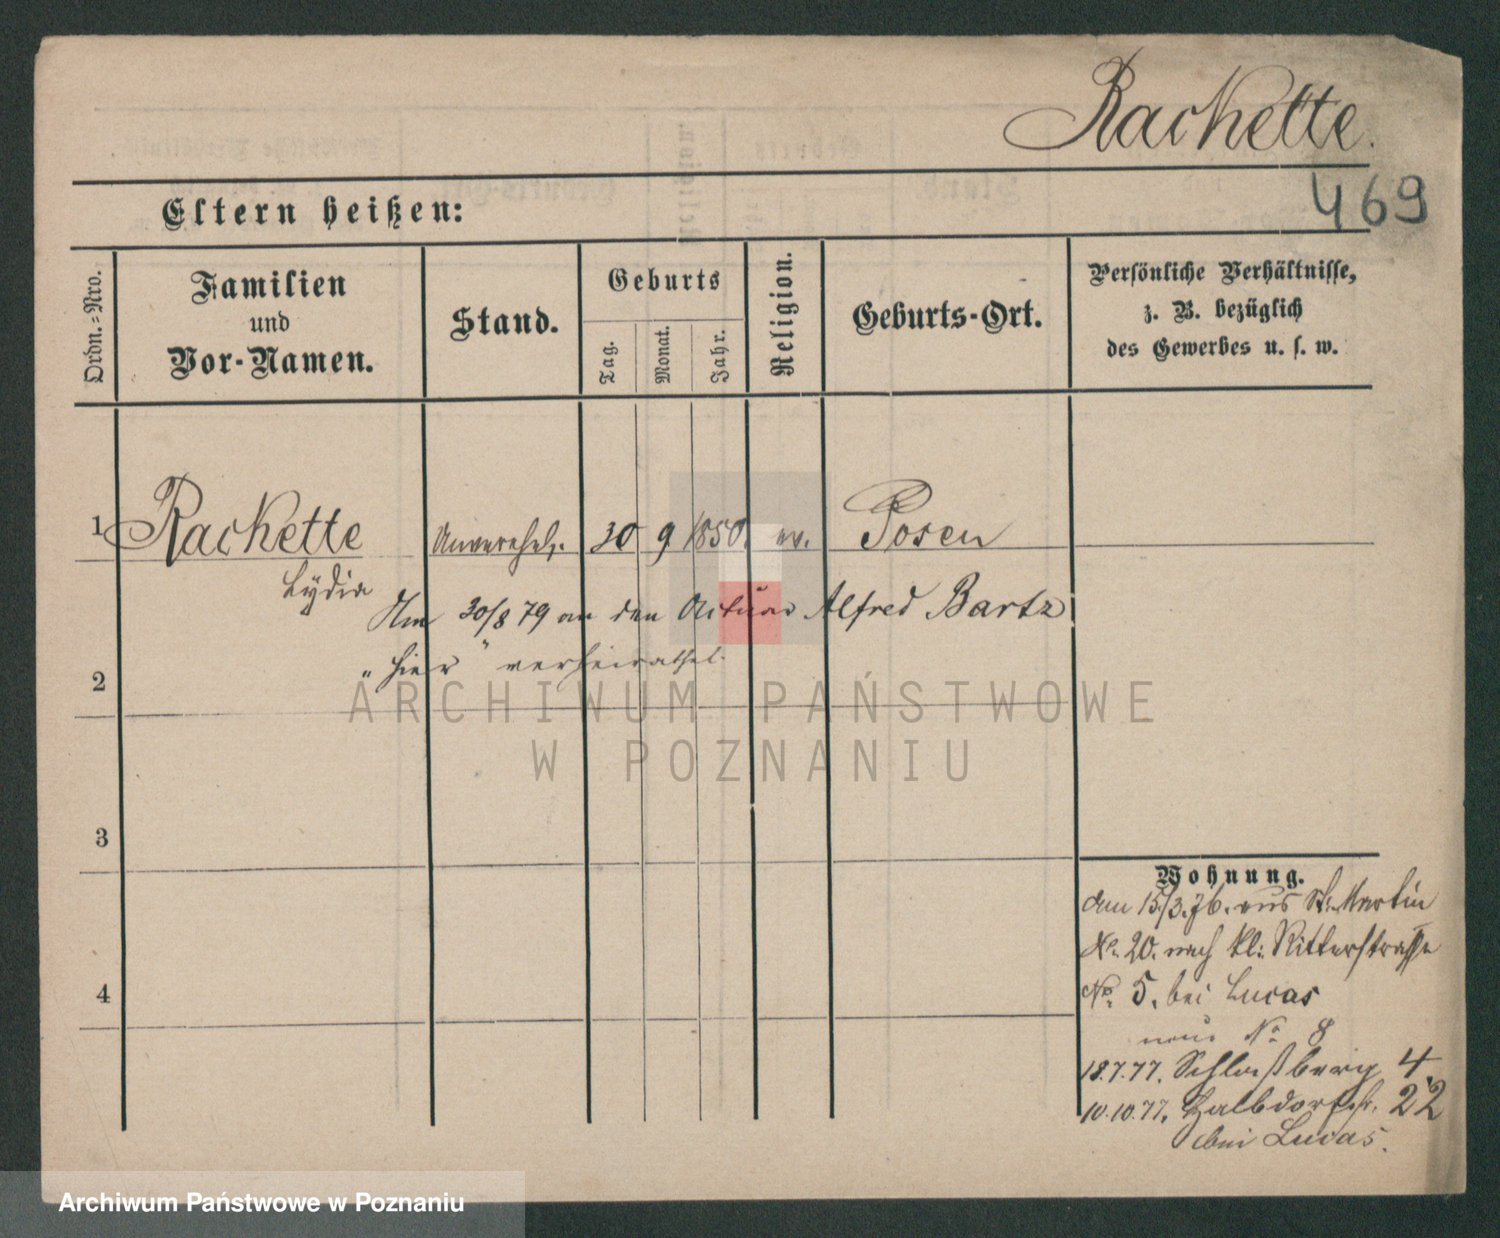 Rackette.
469
Eltern heißen:
Ordn.=Nro.
Familien
und
Vor-Namen.
Stand.
Geburts
Tag.
Monat.
Jahr.
Religion.
Geburts-Ort.
Persönliche Verhältnisse,
z. B. bezüglich
des Gewerbes u. s. w.
1 Rackette Unverehel. 30 9 1850. ev. Posen
Lydia
Am 30/8 79 an den Actuar Alfred Bartz
"hier" verheirathet.
2
3
4
Wohnung.
den 15/3.76. aus St: Martin
No. 20. nach kl: Ritterstrasse
No. 5. bei Lucas
neue No 8
18.7.77. Schloßberg 4.
10.10.77. Halbdorfstr. 22
bei Lucas.
ARCHIWUM PAŃSTWOWE
W POZNANIU
Archiwum Państwowe w Poznaniu